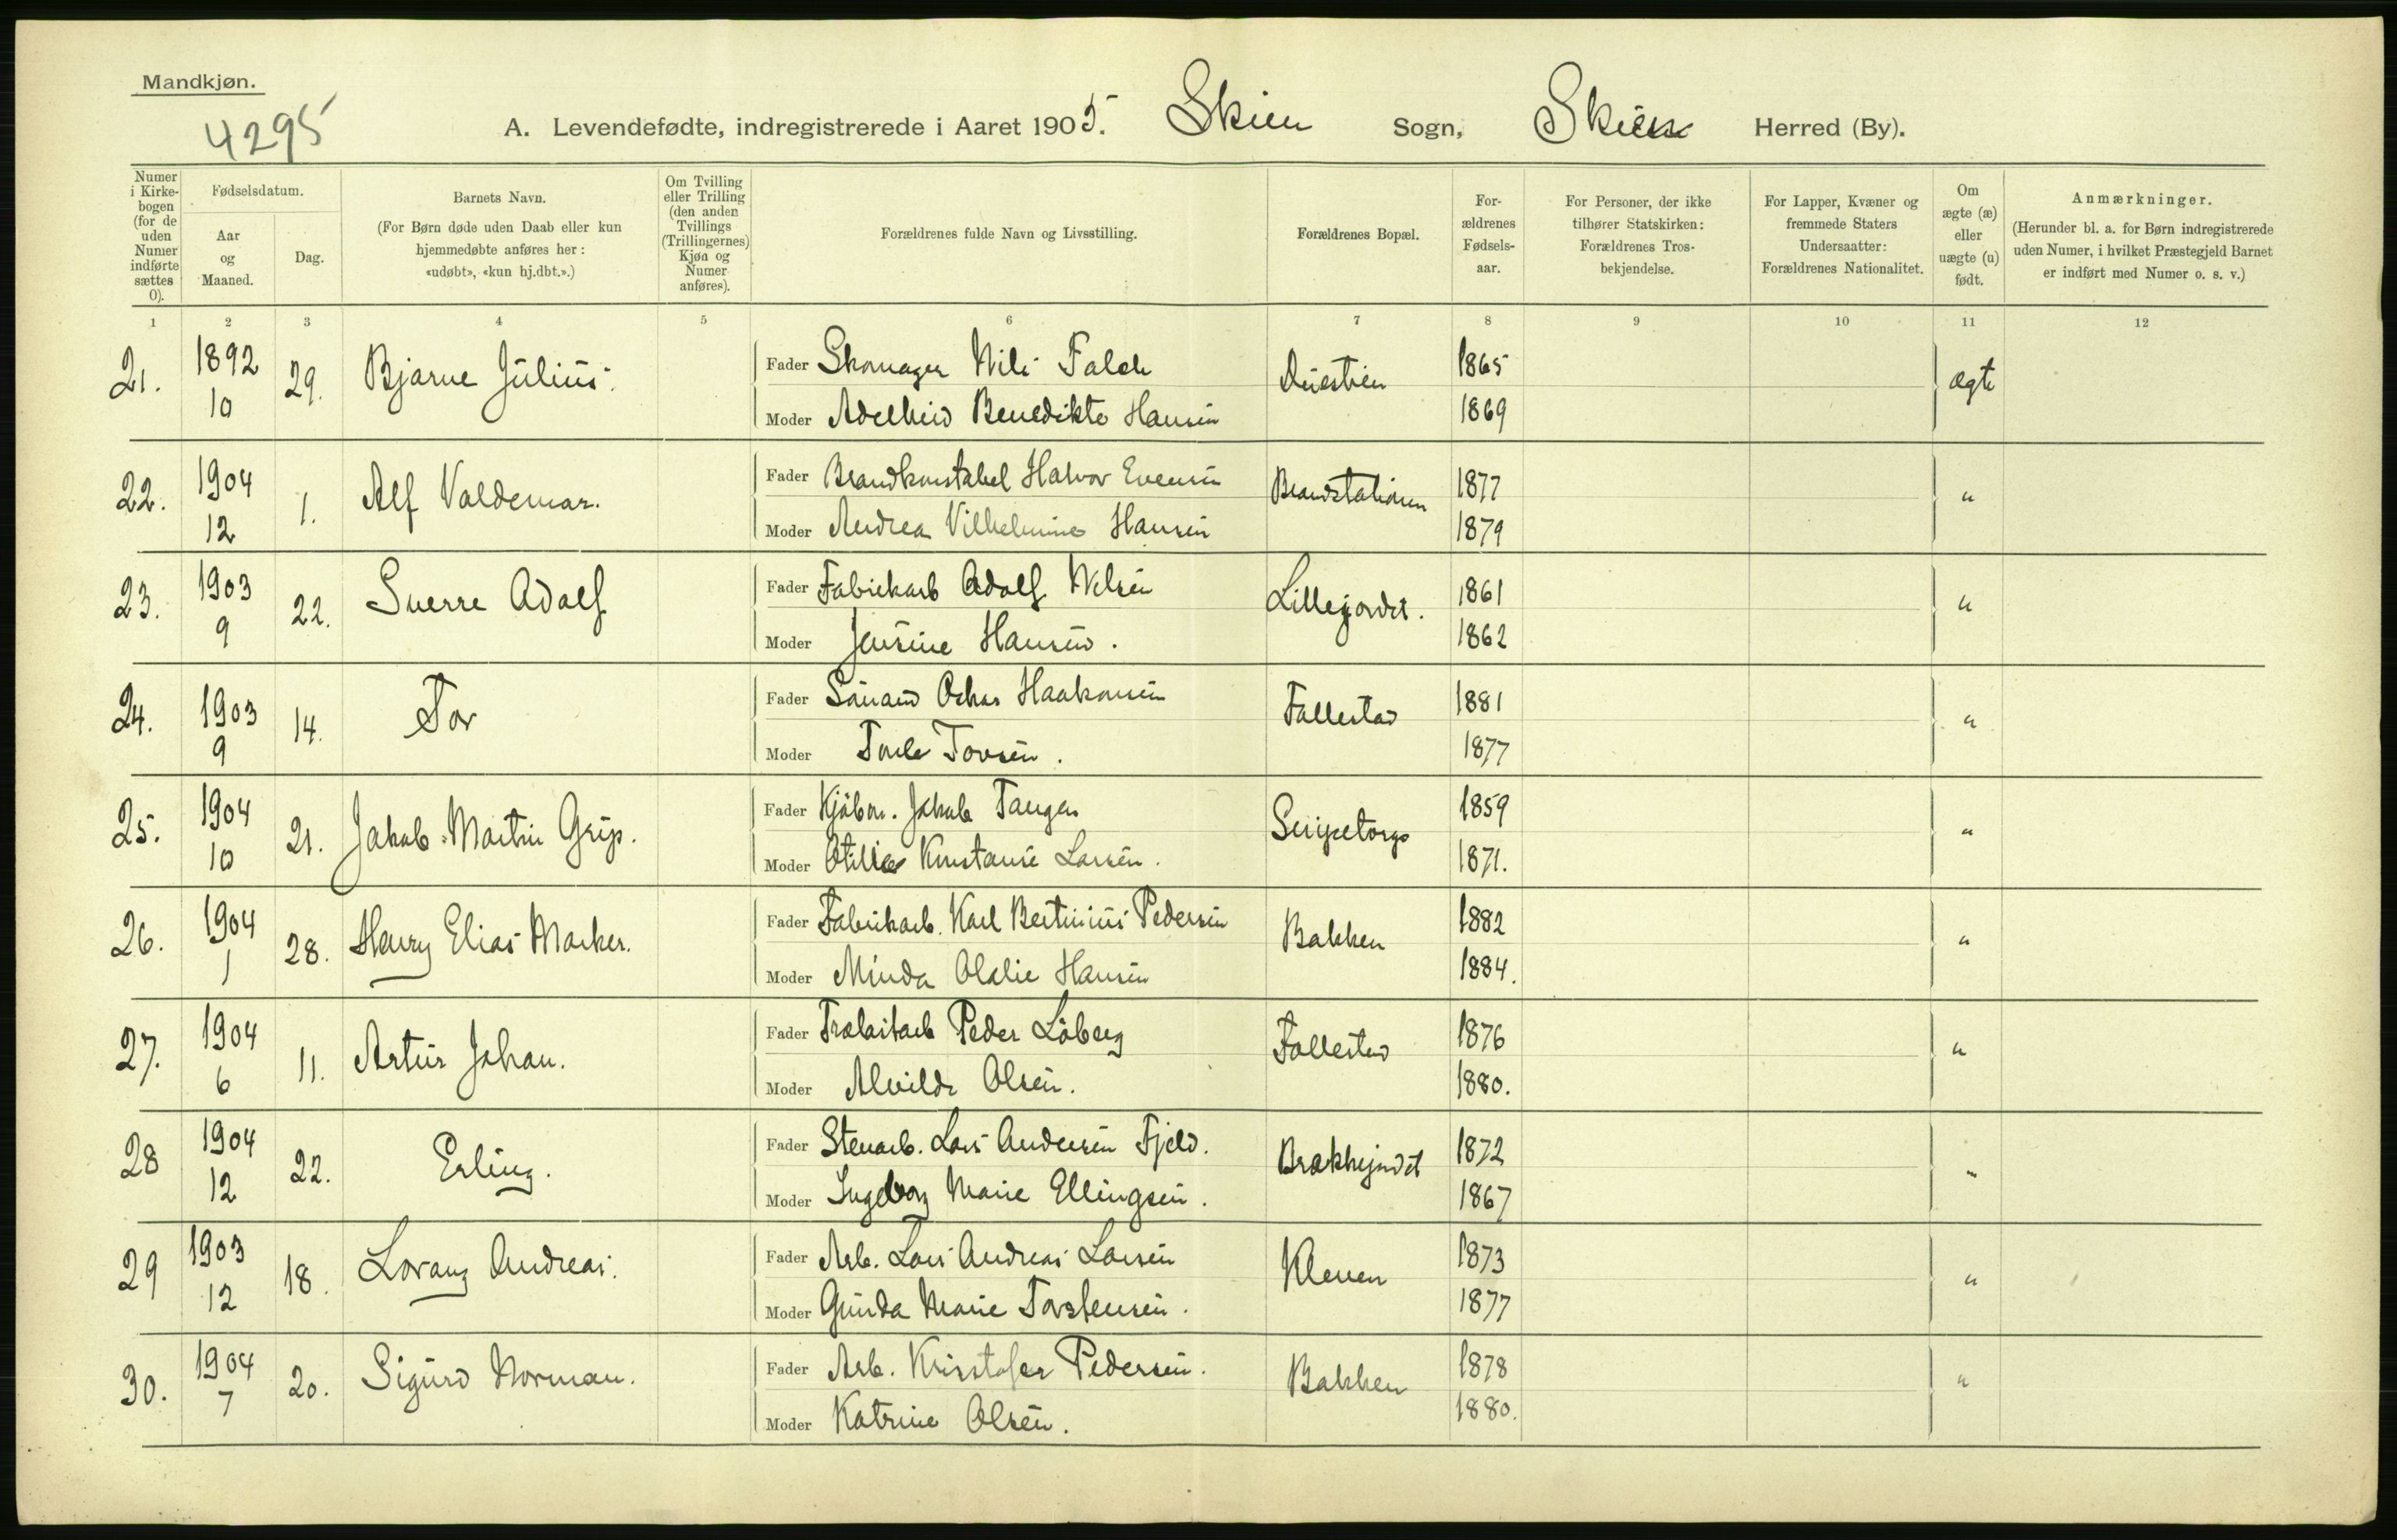 Mandkjøn.
4295
A. Levendefødte, indregistrerede i Aaret 1905. Skien Sogn, Skien Herred (By).
Numer i Kirke-bogen (for de uden Numer indførte sættes 0).
Fødselsdatum.
Aar og Maaned.
Dag.
Barnets Navn.
(For Børn døde uden Daab eller kun hjemmedøbte anføres her: «udøbt», «kun hj.dbt.».)
Om Tvilling eller Trilling (den anden Tvillings (Trillingernes) Kjøn og Numer anføres).
Forældrenes fulde Navn og Livsstilling.
Forældrenes Bopæl.
For-ældrenes Fødsels-aar.
For Personer, der ikke tilhører Statskirken: Forældrenes Tros-bekjendelse.
For Lapper, Kvæner og fremmede Staters Undersaatter: Forældrenes Nationalitet.
Om ægte (æ) eller uægte (u) født.
Anmærkninger.
(Herunder bl. a. for Børn indregistrerede uden Numer, i hvilket Præstegjeld Barnet er indført med Numer o. s. v.)
1 2 3 4 5 6 7 8 9 10 11 12
21. 1892 10 29. Bjarne Julius.
Fader Skomager Nils Falck 1865 ægte
Moder Adelheid Benedikte Hansen 1869
22. 1904 12 1. Alf Valdemar.
Fader Brandkonstabel Halvor Evensen Brandstationen 1877 "
Moder Andrea Vilhelmine Hansen 1879
23. 1903 9 22. Sverre Adolf
Fader Fabrikarb Adolf Nilsen Lillejordet. 1861 "
Moder Jensine Hansen. 1862
24. 1903 9 14. Tor
Fader Sömand Oskar Haakonsen Follestad 1881 "
Moder Torle Tovsen. 1877
25. 1904 10 21. Jakob Martin Grip.
Fader Kjöbm. Jakob Tangen Snipetorp 1859 "
Moder Otilie Konstanse Larsen. 1871.
26. 1904 1 28. Henry Elias Marker.
Fader Fabrikarb. Karl Bertinius Pedersen Bakken 1882 "
Moder Minda Olalie Hansen 1884.
27. 1904 6 11. Artur Johan.
Fader Trælastarb Peder Löberg Follestad 1876 "
Moder Alvilde Olsen. 1880.
28 1904 12 22. Erling.
Fader Stenarb. Lars Andersen Fjeld. Brækkejordet 1872 "
Moder Ingeborg Marie Ellingsen. 1867
29 1903 12 18. Lorang Andreas.
Fader Arb. Lars Andreas Larsen Kleven 1873 "
Moder Gunda Marie Torstensen. 1877
30. 1904 7 20. Sigurd Norman.
Fader Arb. Kristofer Pedersen. Bakken 1878 "
Moder Katrine Olsen. 1880.